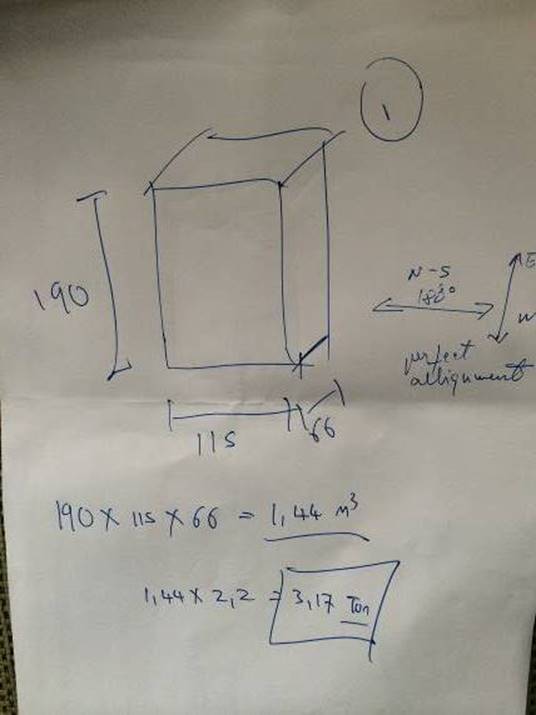 1
N-S
180°
E
W
190
perfect
allignment
115
66
190 x 115 x 66 = 1,44 m³
1,44 x 2,2 = 3,17 Ton